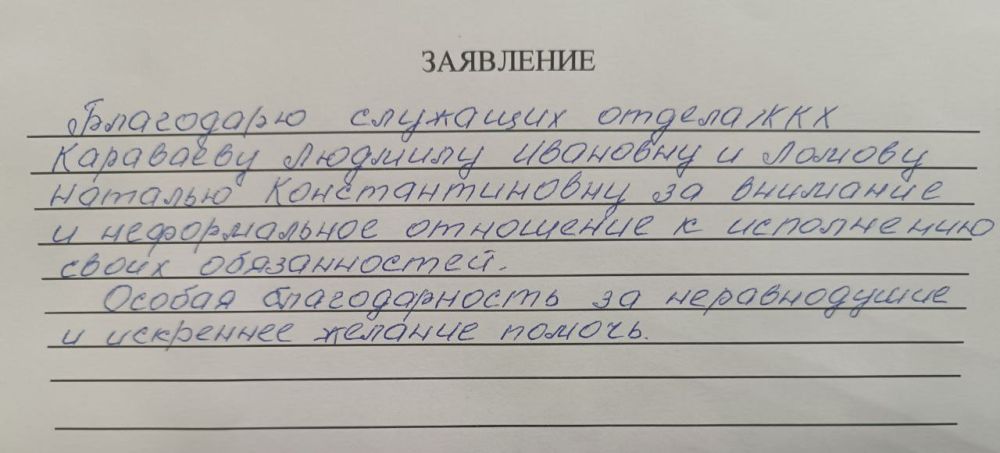 ЗАЯВЛЕНИЕ
Благодарю служащих отдела ЖКХ
Караваеву Людмилу Ивановну и Ломову
Наталью Константиновну за внимание
и неформальное отношение к исполнению
своих обязанностей.
Особая благодарность за неравнодушие
и искреннее желание помочь.